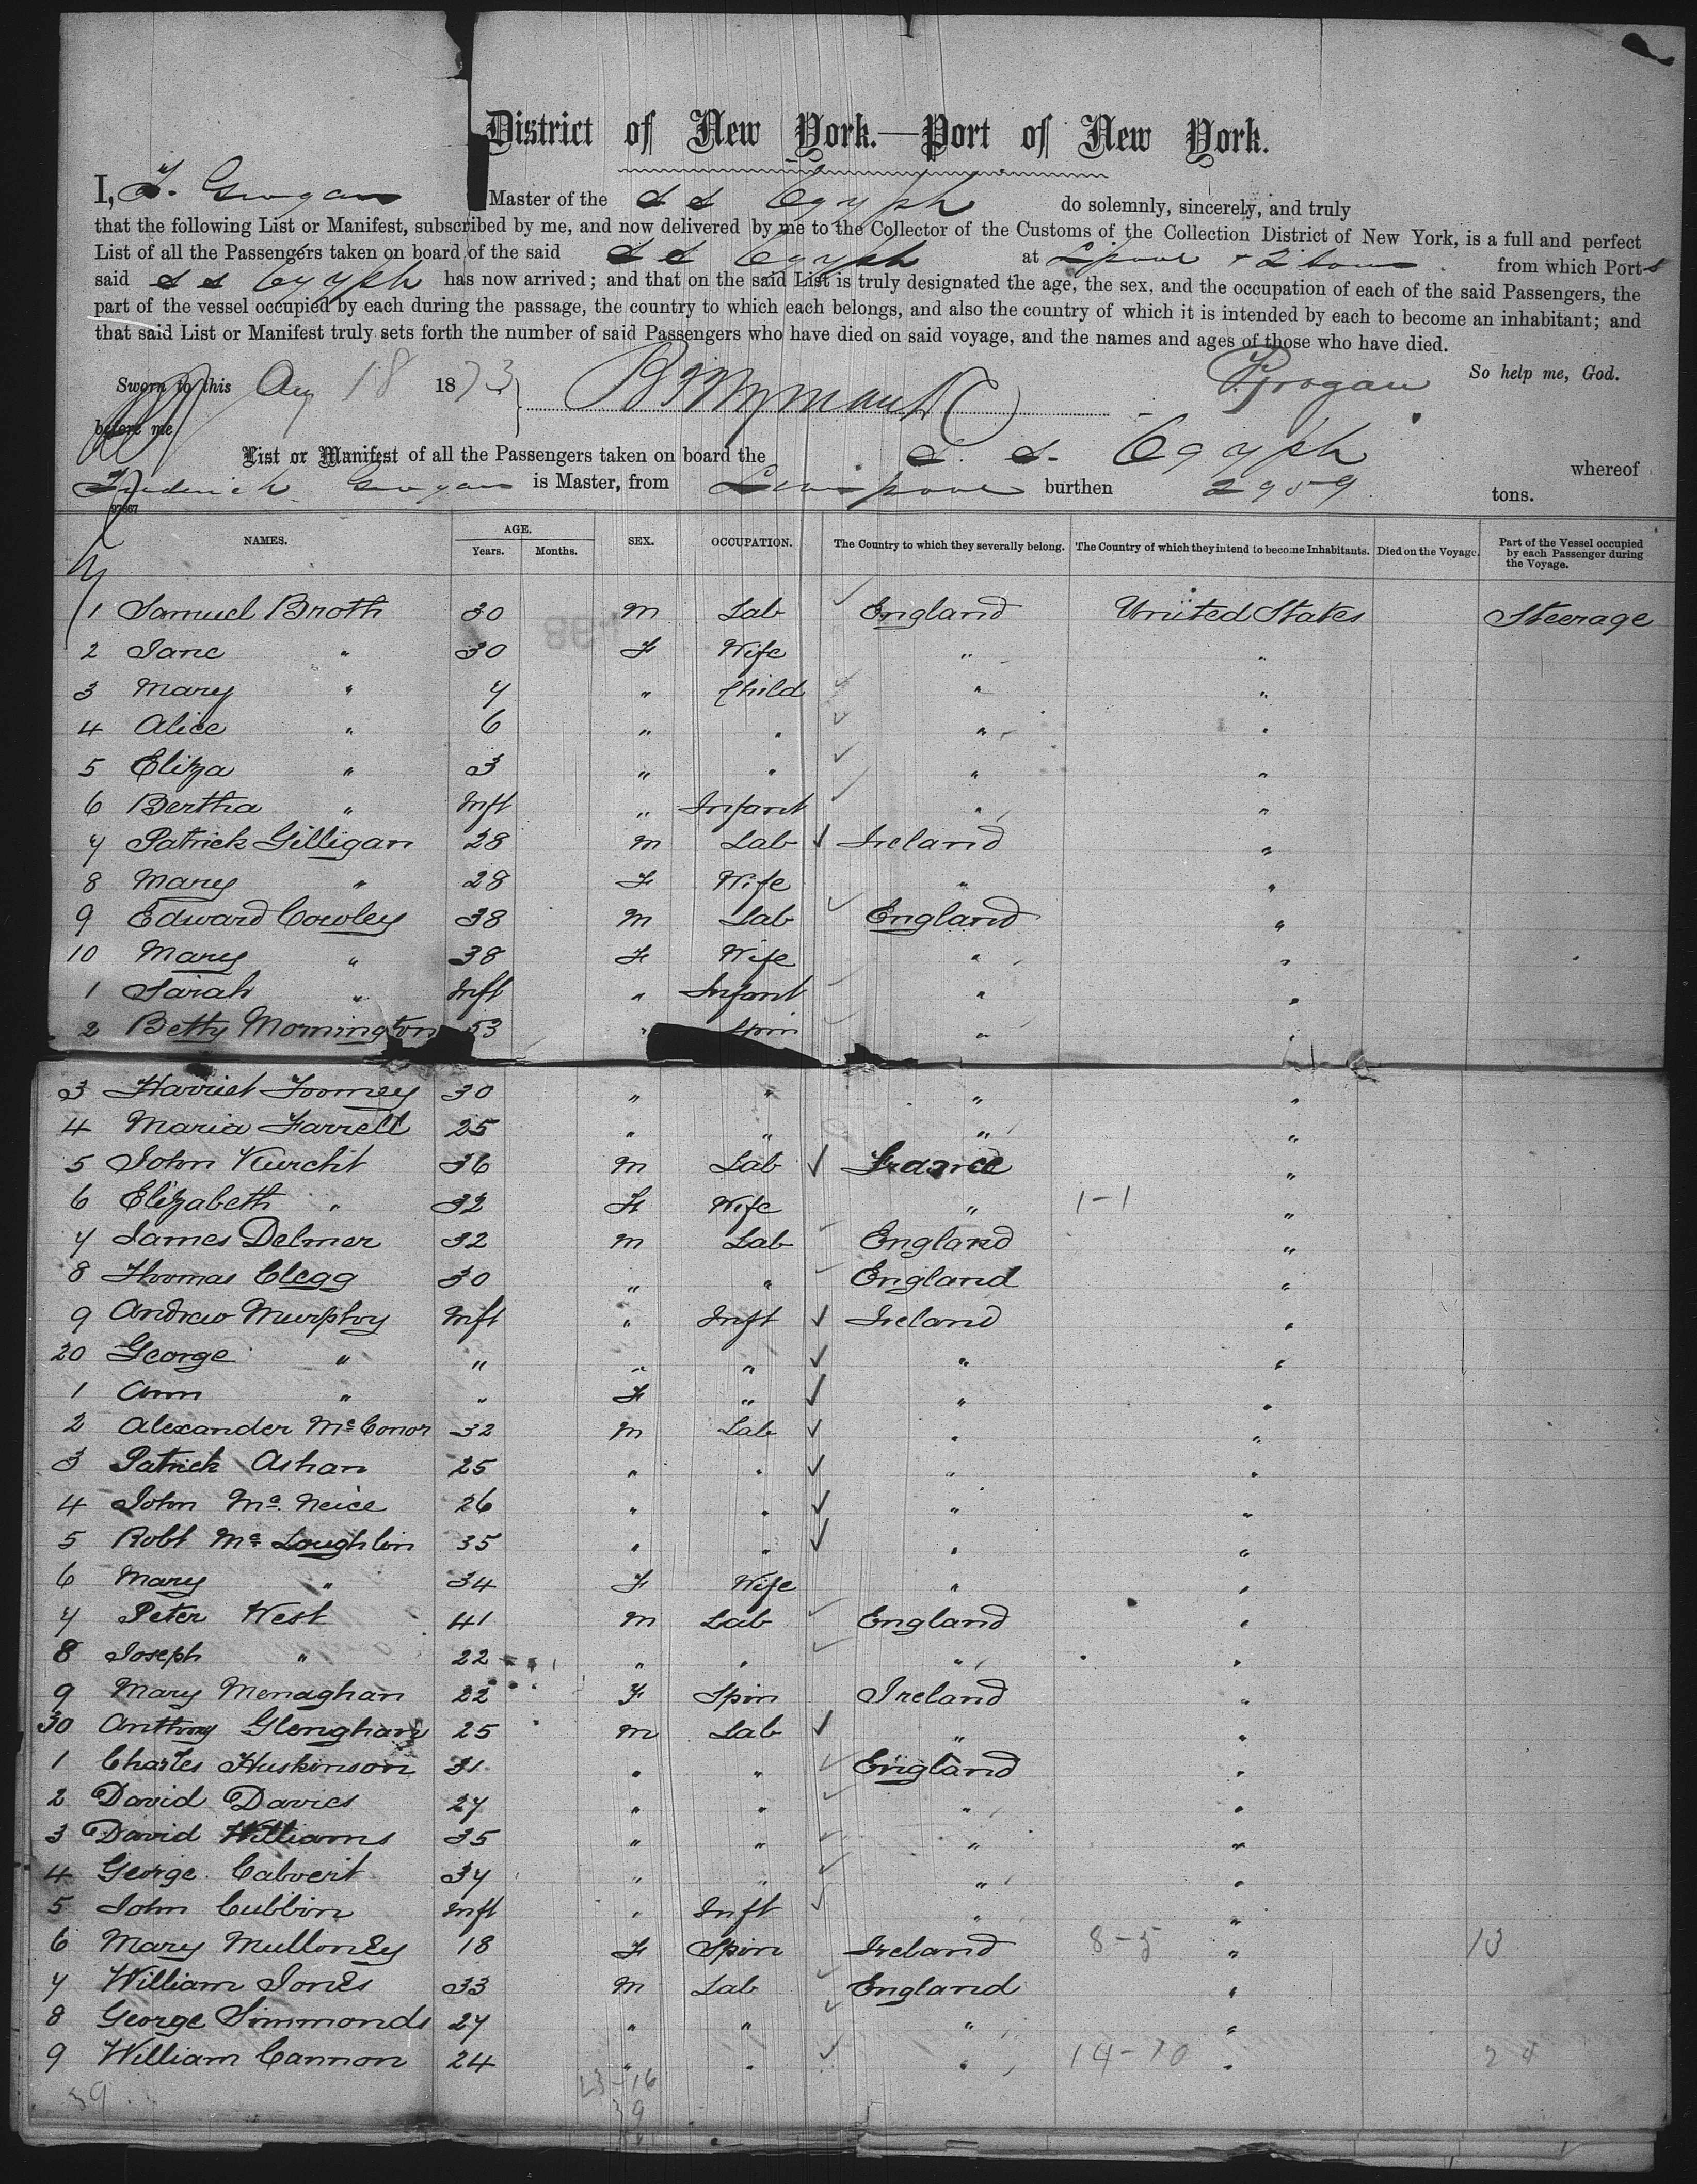 District of New York.—Port of New York.
I, F. Grogan Master of the S S Egypt do solemnly, sincerely, and truly
that the following List or Manifest, subscribed by me, and now delivered by me to the Collector of the Customs of the Collection District of New York, is a full and perfect
List of all the Passengers taken on board of the said S S Egypt at L'pool & Q'town from which Ports
said S S Egypt has now arrived; and that on the said List is truly designated the age, the sex, and the occupation of each of the said Passengers, the
part of the vessel occupied by each during the passage, the country to which each belongs, and also the country of which it is intended by each to become an inhabitant; and
that said List or Manifest truly sets forth the number of said Passengers who have died on said voyage, and the names and ages of those who have died.
Sworn to this Aug 18 1873 F Grogan So help me, God.
before me
List or Manifest of all the Passengers taken on board the S. S. Egypt whereof
Frederick Grogan is Master, from Liverpool burthen 2959 tons.
NAMES. AGE. Years. Months. SEX. OCCUPATION. The Country to which they severally belong. The Country of which they intend to become Inhabitants. Died on the Voyage. Part of the Vessel occupied by each Passenger during the Voyage.
1 Samuel Broth 30 M Lab England United States Steerage
2 Jane " 30 F Wife " "
3 Mary " 7 " Child " "
4 Alice " 6 " " " "
5 Eliza " 3 " " " "
6 Bertha " Inft " Infant " "
7 Patrick Gilligan 28 M Lab Ireland "
8 Mary " 28 F Wife " "
9 Edward Cowley 38 M Lab England "
10 Mary " 38 F Wife " "
1 Sarah " Inft " Infant " "
2 Betty Mornington 53 " Spin " "
3 Harriet Toomey 30 " " " "
4 Maria Farrell 25 " " " "
5 John Kurcht 36 M Lab France "
6 Elizabeth " 32 F Wife " 1-1 "
7 James Delmer 32 M Lab England "
8 Thomas Clegg 30 " " England "
9 Andrew Murphy Inft " Inft Ireland "
20 George " " " " " "
1 Ann " " F " " "
2 Alexander McConor 32 M Lab " "
3 Patrick Ashan 25 " " " "
4 John Mc Neice 26 " " " "
5 Robt Mc Loughlin 35 " " " "
6 Mary " 34 F Wife " "
7 Peter West 41 M Lab England "
8 Joseph " 22 " " " "
9 Mary Monaghan 22 F Spin Ireland "
30 Anthony Glenghan 25 M Lab " "
1 Charles Huskinson 31 " " England "
2 David Davies 27 " " " "
3 David Williams 35 " " " "
4 George Calvert 37 " " " "
5 John Cubbin Inft " Inft " "
6 Mary Mulloney 18 F Spin Ireland 8-5 " 13
7 William Jones 33 M Lab England "
8 George Simmonds 27 " " " "
9 William Cannon 24 " " " 14-10 " 24
39 23-16